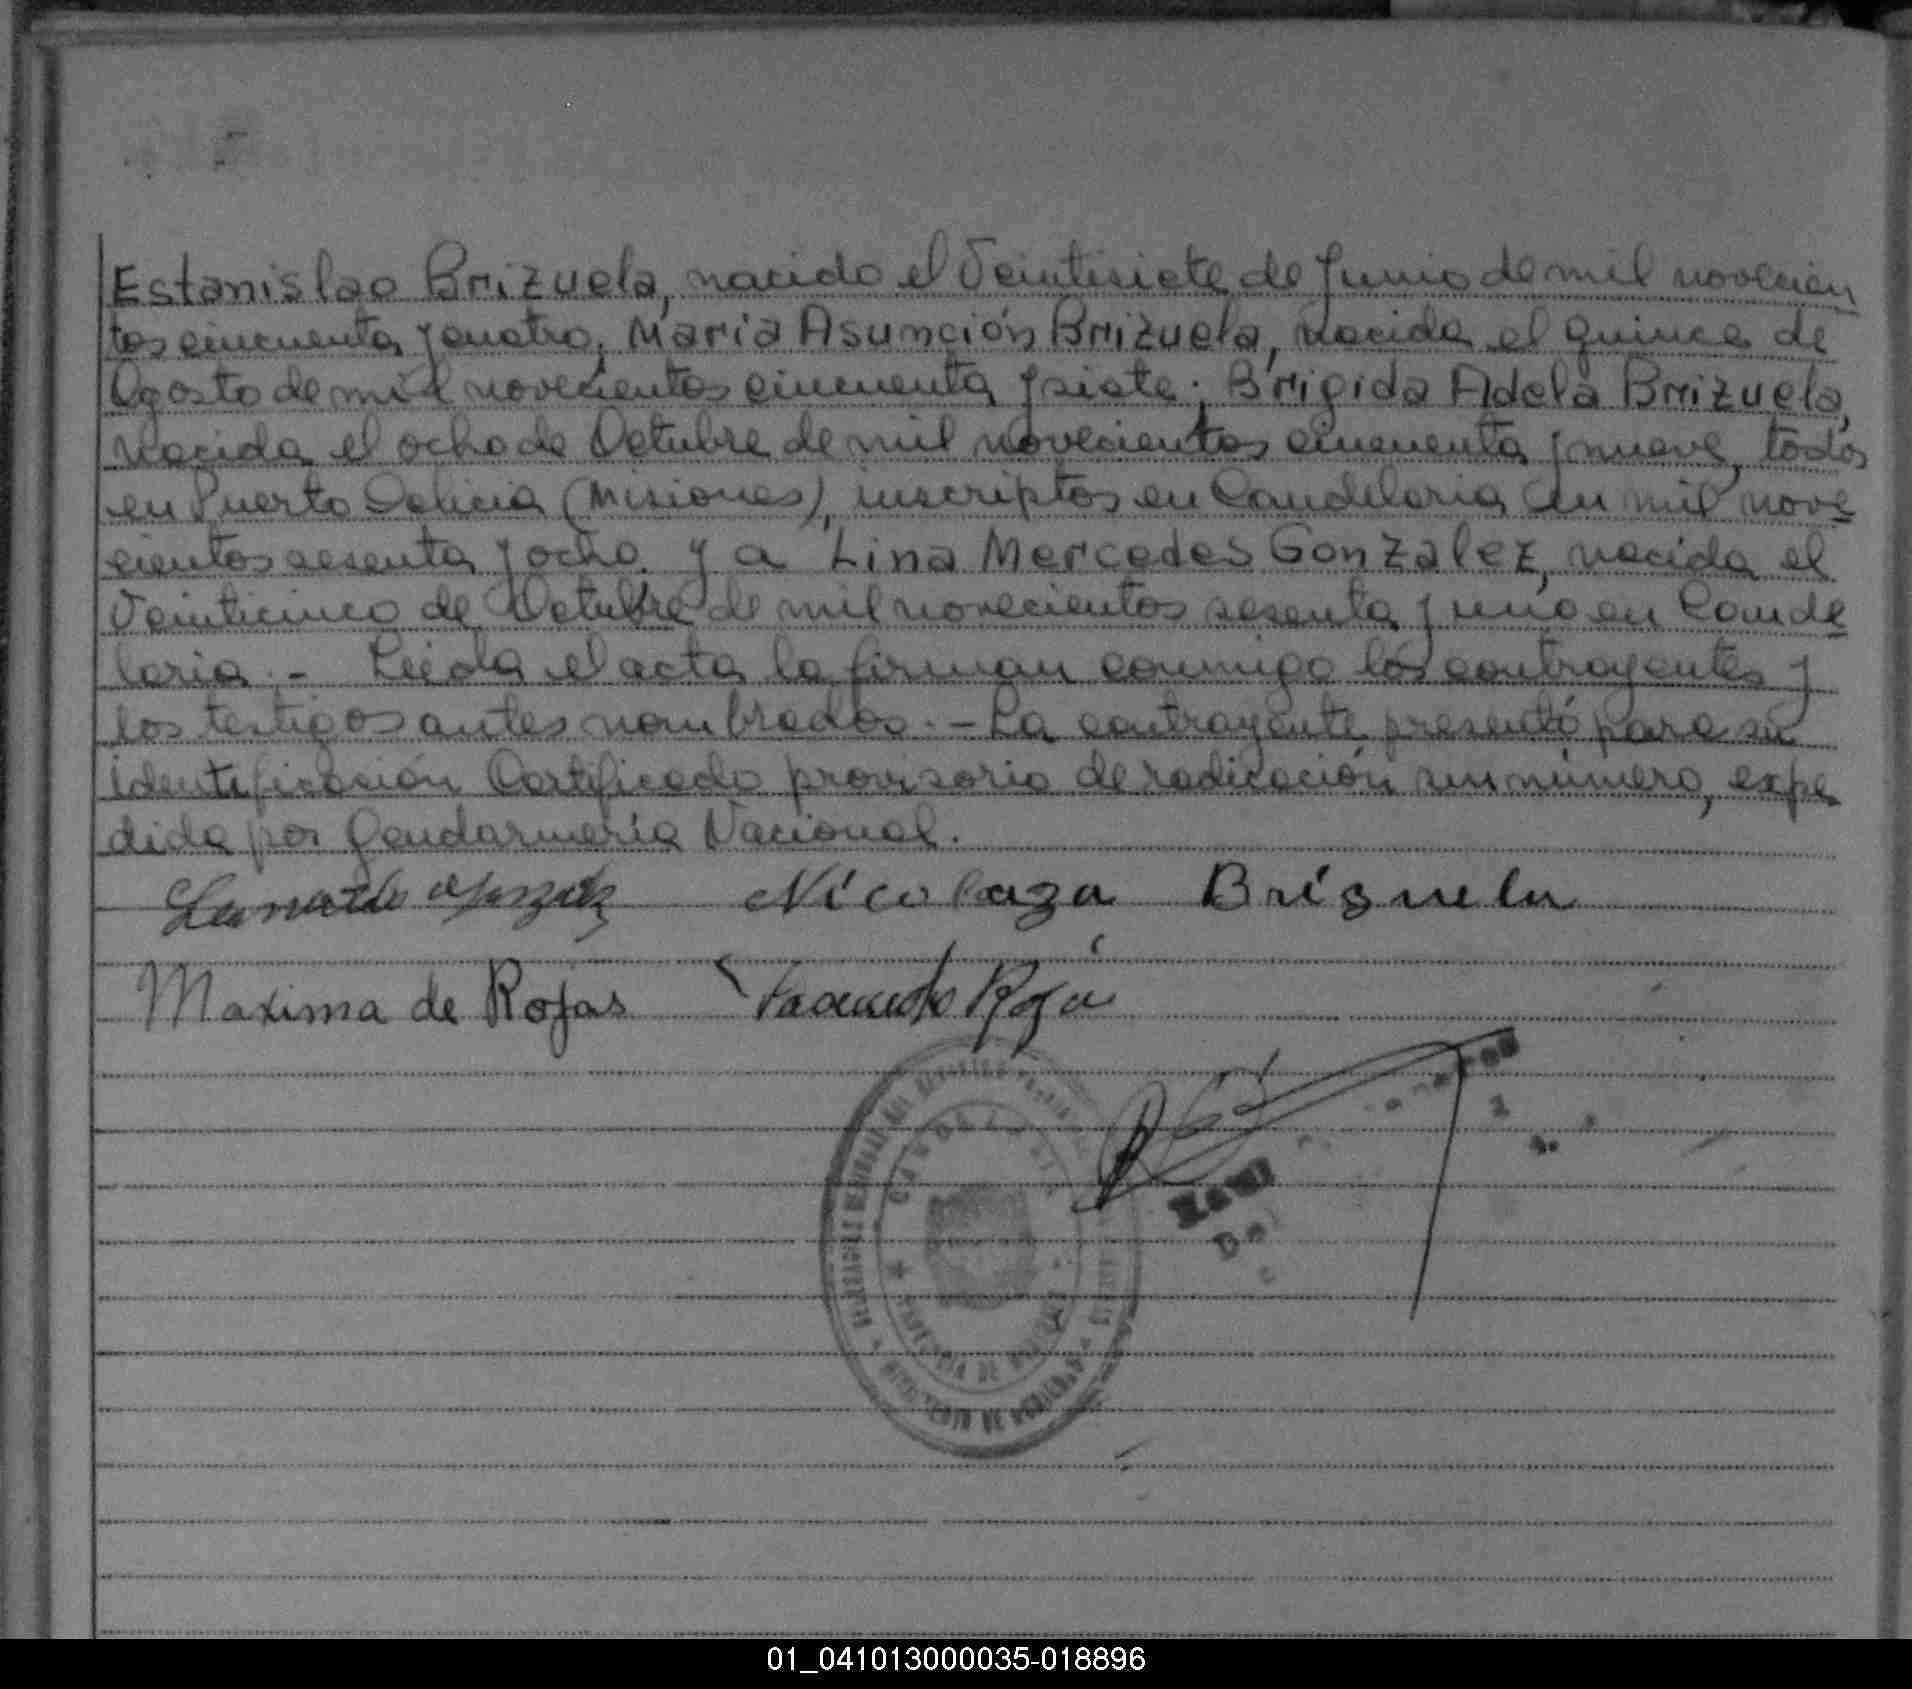 Estanislao Brizuela, nacido el Veintisiete de Junio de mil novecien
tos cincuenta y cuatro; Maria Asunción Brizuela, nacida el quince de
Agosto de mil novecientos cincuenta y siete; Brigida Adela Brizuela,
nacida el ocho de Octubre de mil novecientos cincuenta y nueve, todos
en Puerto Delicia (Misiones), inscriptos en Candelaria en mil nove
cientos sesenta y ocho. y a Lina Mercedes Gonzalez, nacida el
Veinticinco de Octubre de mil novecientos sesenta y uno en Cande
laria.- Leída el acta la firman conmigo los contrayentes y
los testigos antes nombrados.- La contrayente presentó para su
identificación Certificado provisorio de radicación sin número, expe
dida por Gendarmería Nacional.
Nicolaza Brisuela
Maxima de Rojas Facundo Roja
DE
01_041013000035-018896